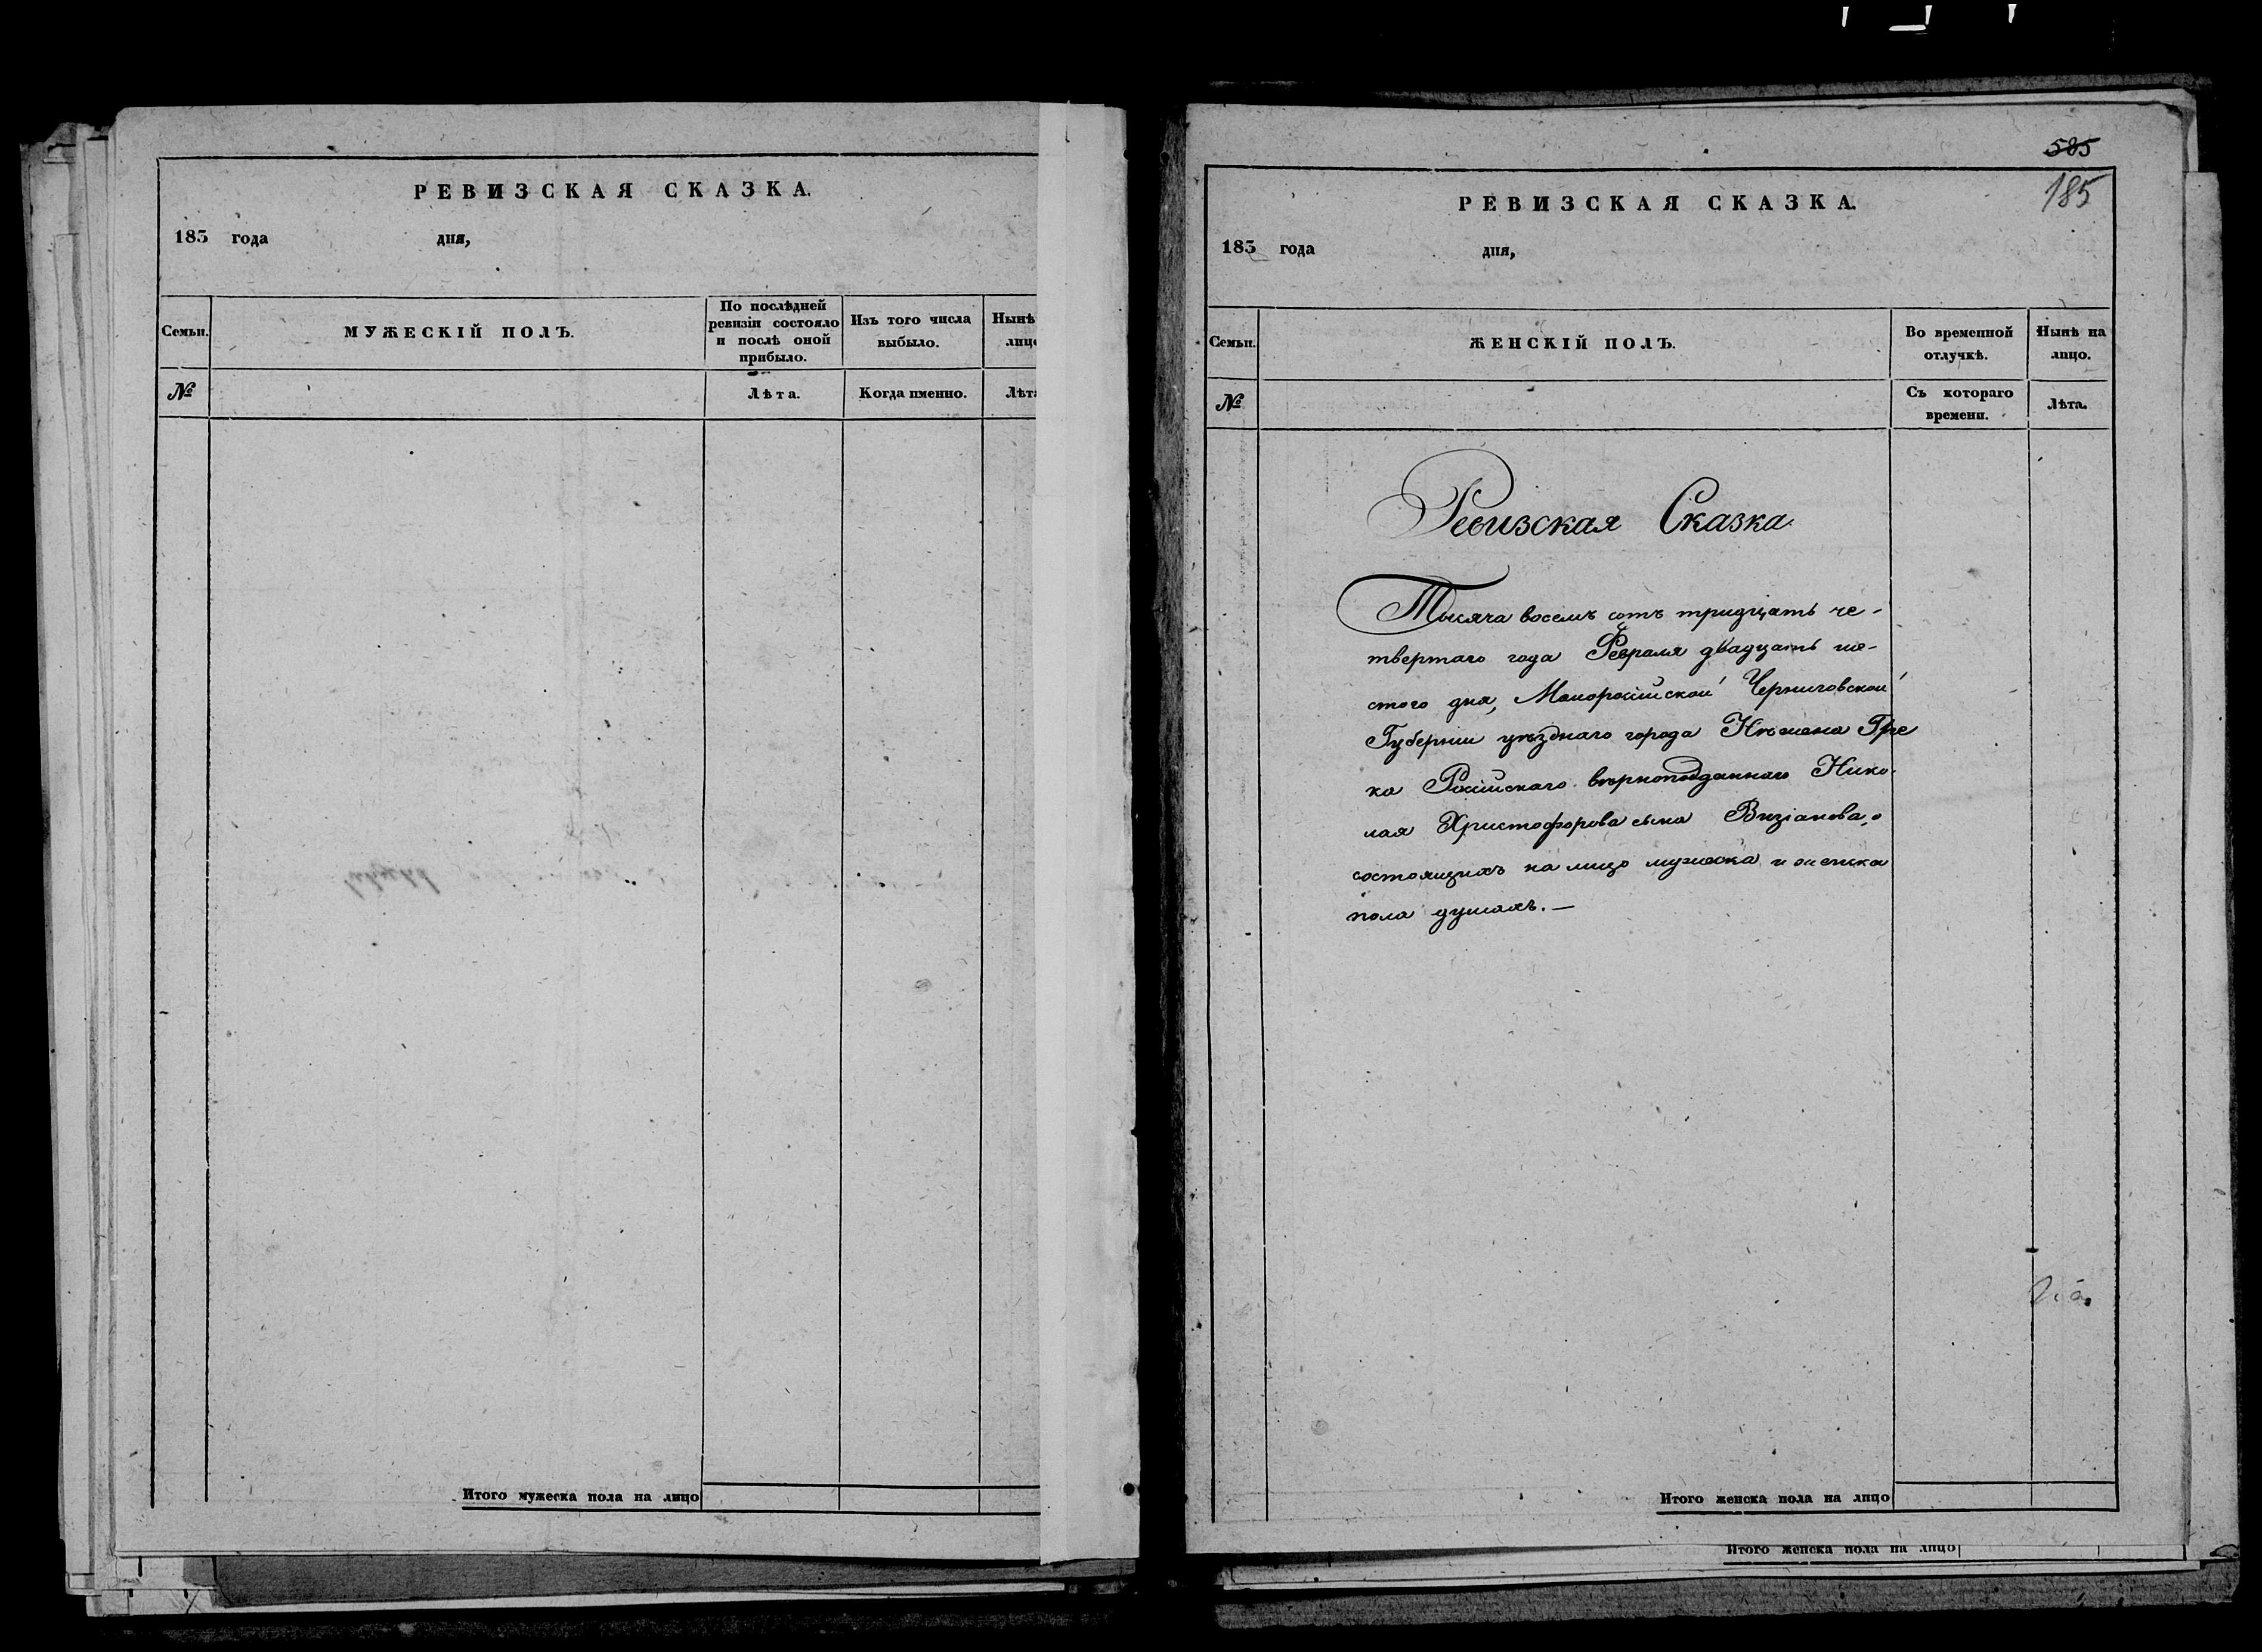 РЕВИЗСКАЯ СКАЗКА.
183 года дня,
Семьи.
МУЖЕСКІЙ ПОЛЪ.
По послѣдней
ревизіи состояло
и послѣ оной
прибыло.
Изъ того числа
выбыло.
Нынѣ
лицо
№
Лѣта.
Когда именно.
Лѣта
Итого мужеска пола на лицо
585
185
РЕВИЗСКАЯ СКАЗКА.
183 года дня,
Семьи.
ЖЕНСКІЙ ПОЛЪ.
Во временной
отлучкѣ.
Нынѣ на
лицо.
№
Съ котораго
времени.
Лѣта.
Ревизская Сказка.
Тысяча восемь сотъ тридцать че-
твертаго года Февраля двадцать ше-
стого дня, Малоросійской Черниговской
Губерніи уѣзднаго города Нѣжина Гре
ка Російскаго вѣрноподданнаго Нико-
лая Христофорова сына Визіанова, о
состоящихъ на лицо мужеска и женска
пола душахъ. —
Итого женска пола на лицо
Итого женска пола на лицо